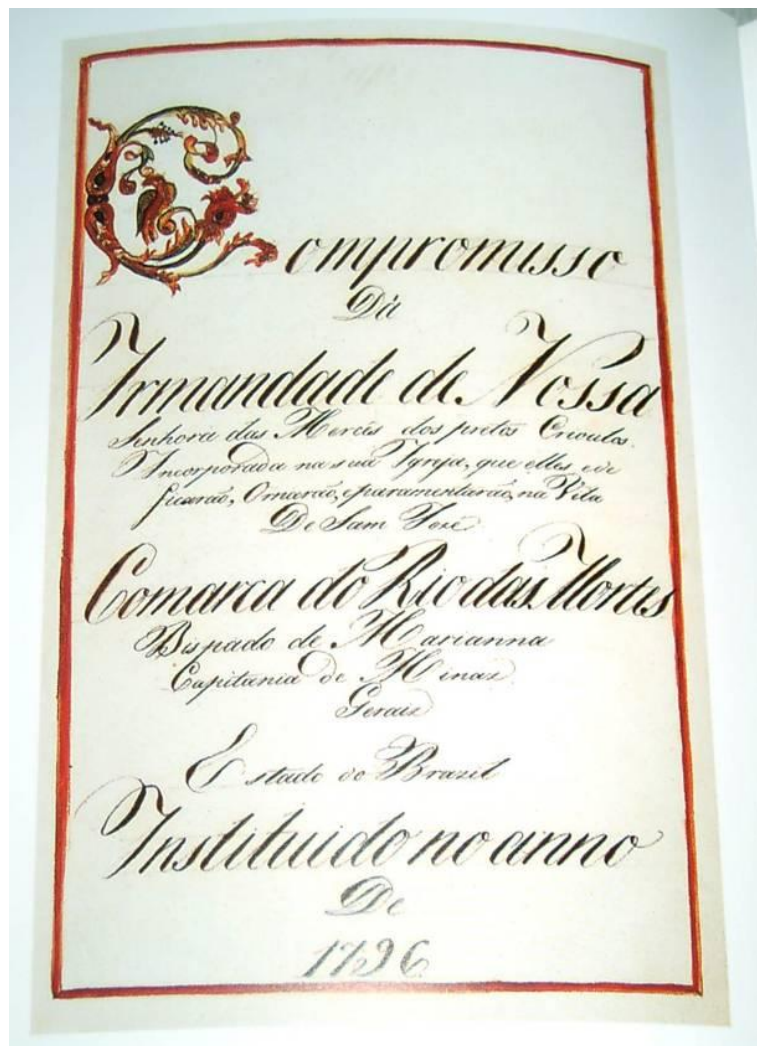 Compromisso
Da
Irmandade de Nossa
Senhora das Mercês dos pretos Crioulos.
Incorporada na sua Igreja, que elles ede
ficarão, Ornarão, eparamentarão, na Vila
De Sam José
Comarca do Rio das Mortes
Bispado de Marianna
Capitania de Minas
Gerais
Estado do Brazil
Instituido no anno
De
1796